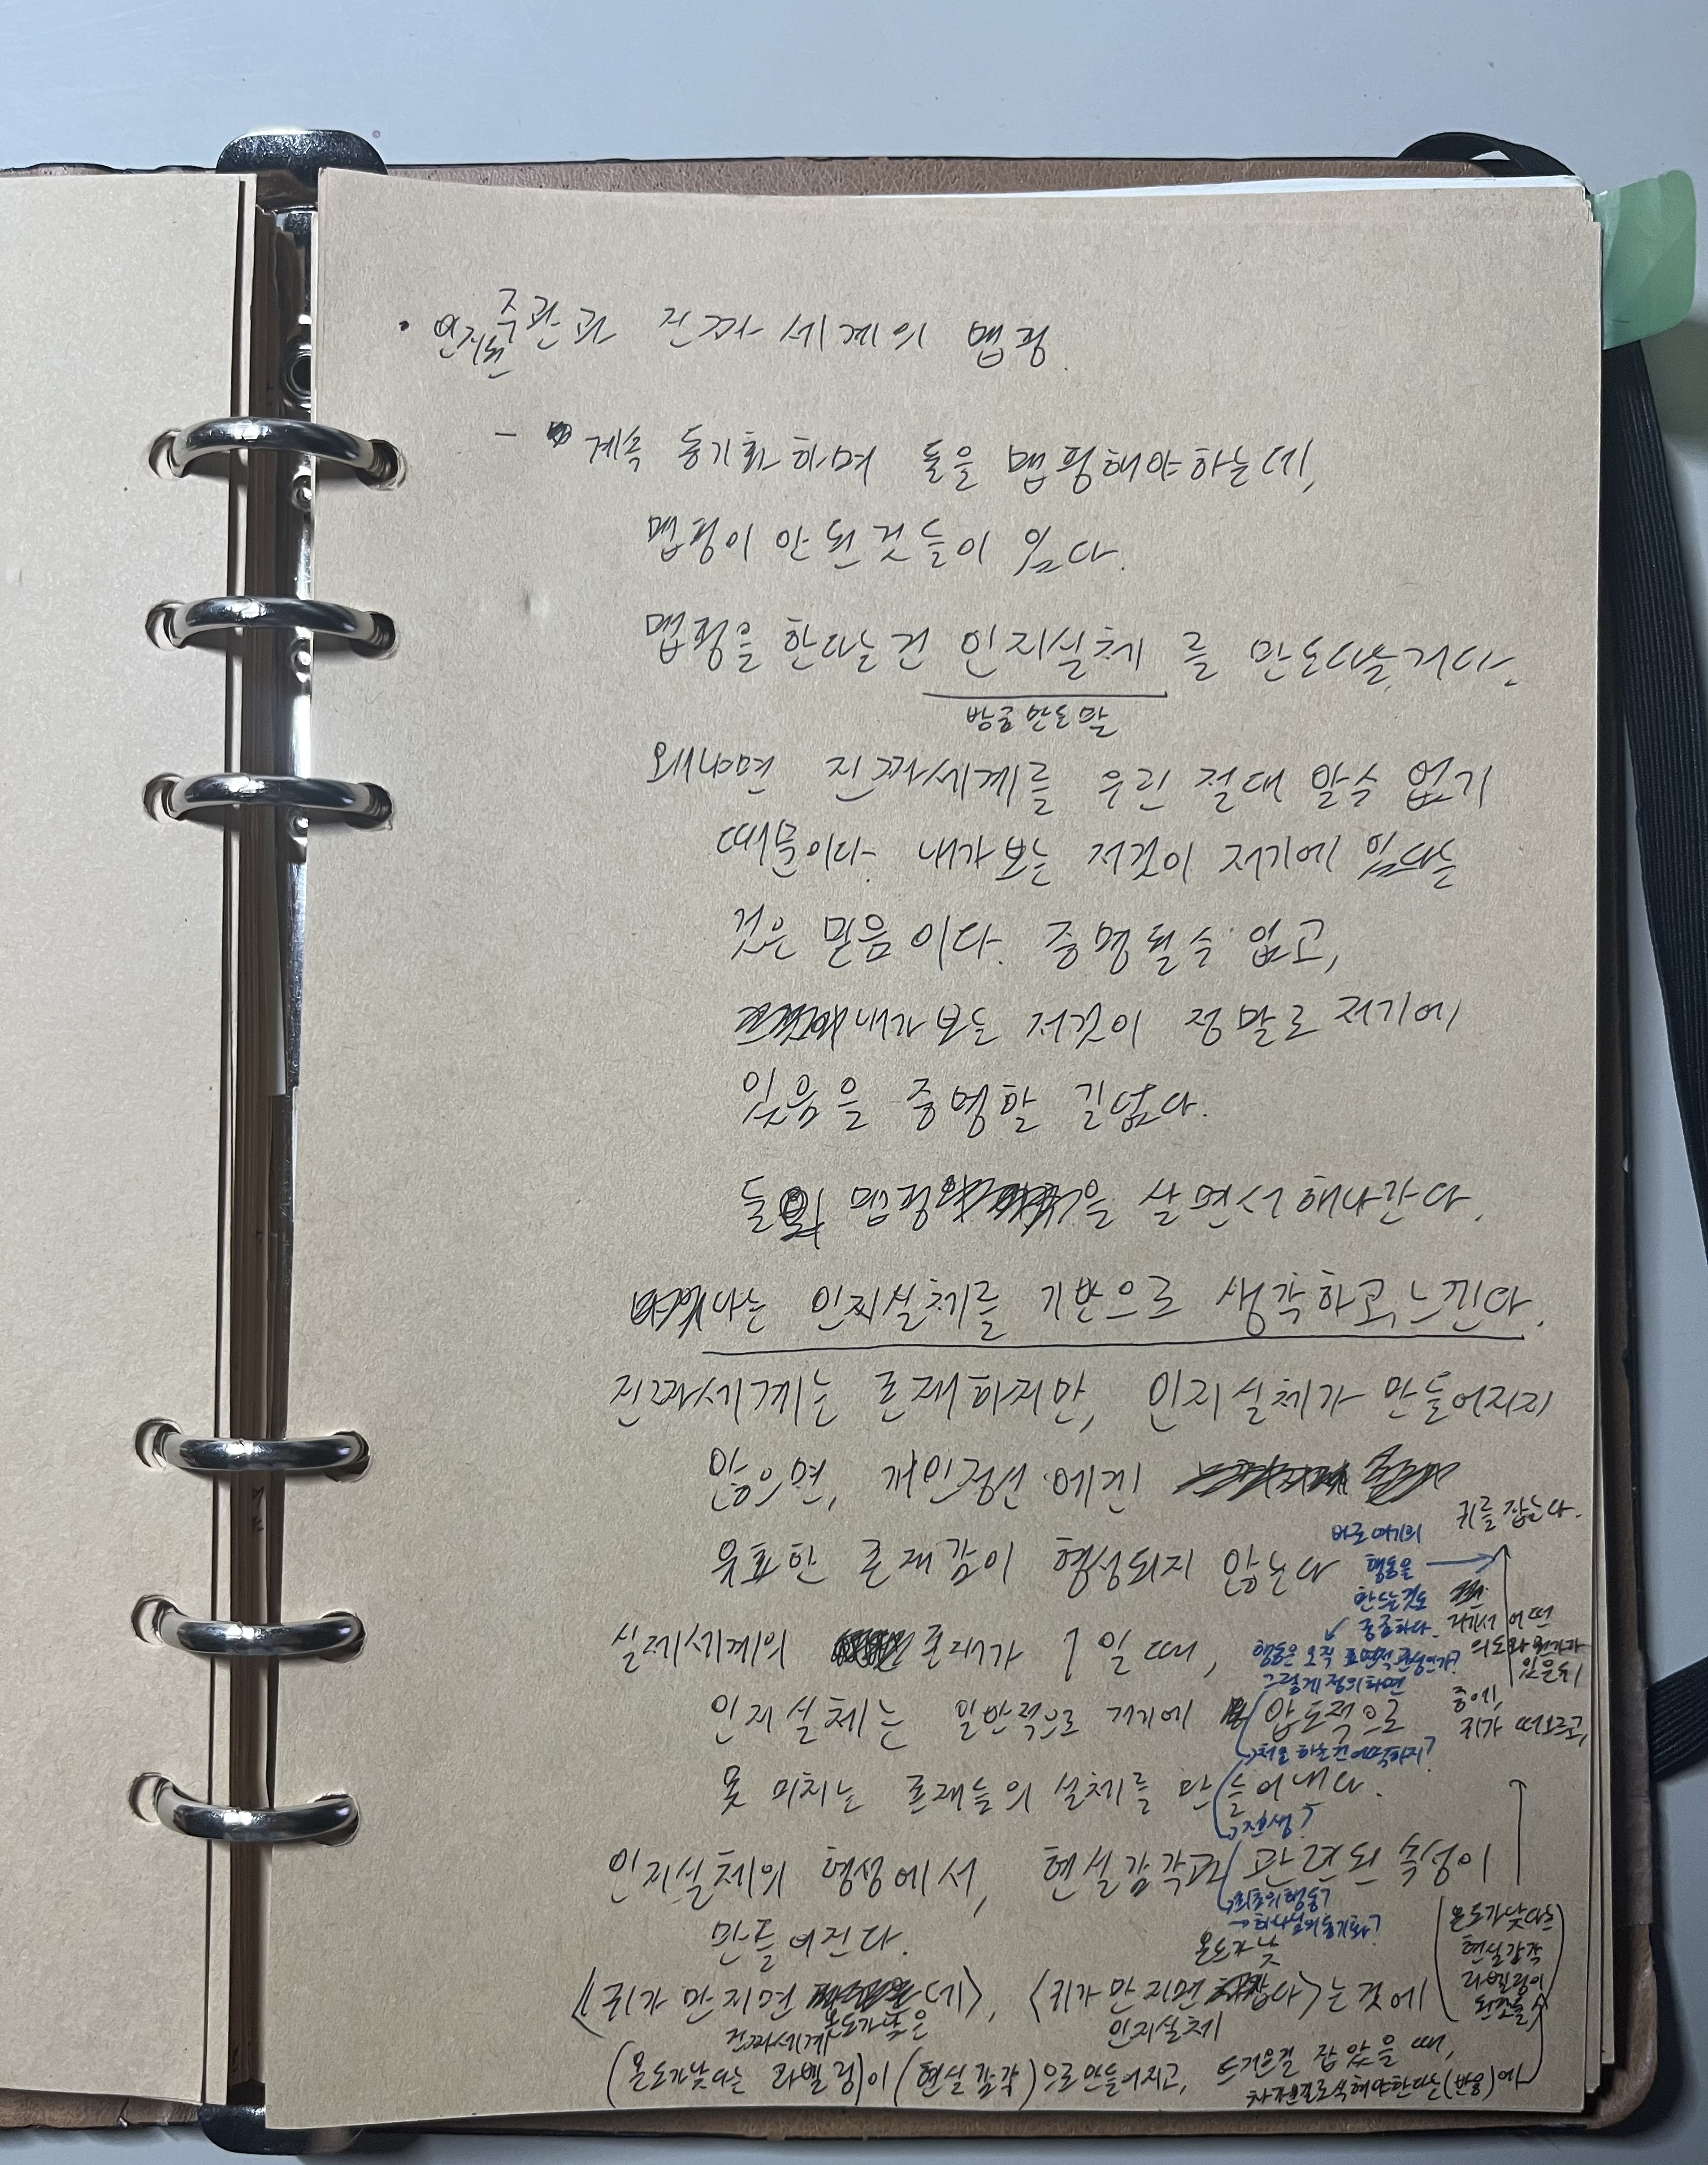 • 인지된 주관과 진짜세계의 맵핑.
- 계속 동기화 하며 둘을 맵핑해야하는데,
맵핑이 안된것들이 있다.
맵핑을 한다는건 인지실체를 만든다는거다.
방금 만든말
왜냐면 진짜세계를 우린 절대 알수 없기
때문이다. 내가보는 저것이 저기에 있다는
것은 믿음이다. 증명될수 없고,
내가보는 저것이 정말로 저기에
있음을 증명할 길없다.
둘의 맵핑을 살면서 해나간다.
나는 인지실체를 기반으로 생각하고, 느낀다.
진짜세계는 존재하지만, 인지실체가 만들어지지
않으면, 개인정신에겐
유효한 존재감이 형성되지 않는다
실제세계의 존재가 1일때,
인지실체는 일반적으로 거기에 압도적으로
못 미치는 존재들의 실체를 만들어낸다.
인지실체의 형성에서, 현실감각과 관련된 속성이
만들어진다.
온도가낮
〈귀가 만지면 온도가낮은데〉, 〈귀가 만지면 찹다〉는것에
진짜세계
인지실체
(온도가낮다는 라벨링)이 (현실감각)으로 만들어지고, 뜨거운걸 잡았을때,
차가운걸로식혀야한다는(반응)에
(온도가낮다는
현실감각
라벨링이
된것들)
중에,
귀가 떠오르고,
거기서 어떤
의도와
귀를 잡는다.
바로 여기의
행동을
만드는것도
중요하다.
행동은 오직 표면적 관성인가?
그렇게 정의하면
처음 하는건 어떡하지?
전생?
최초의행동?
→ 하나님의동기화?